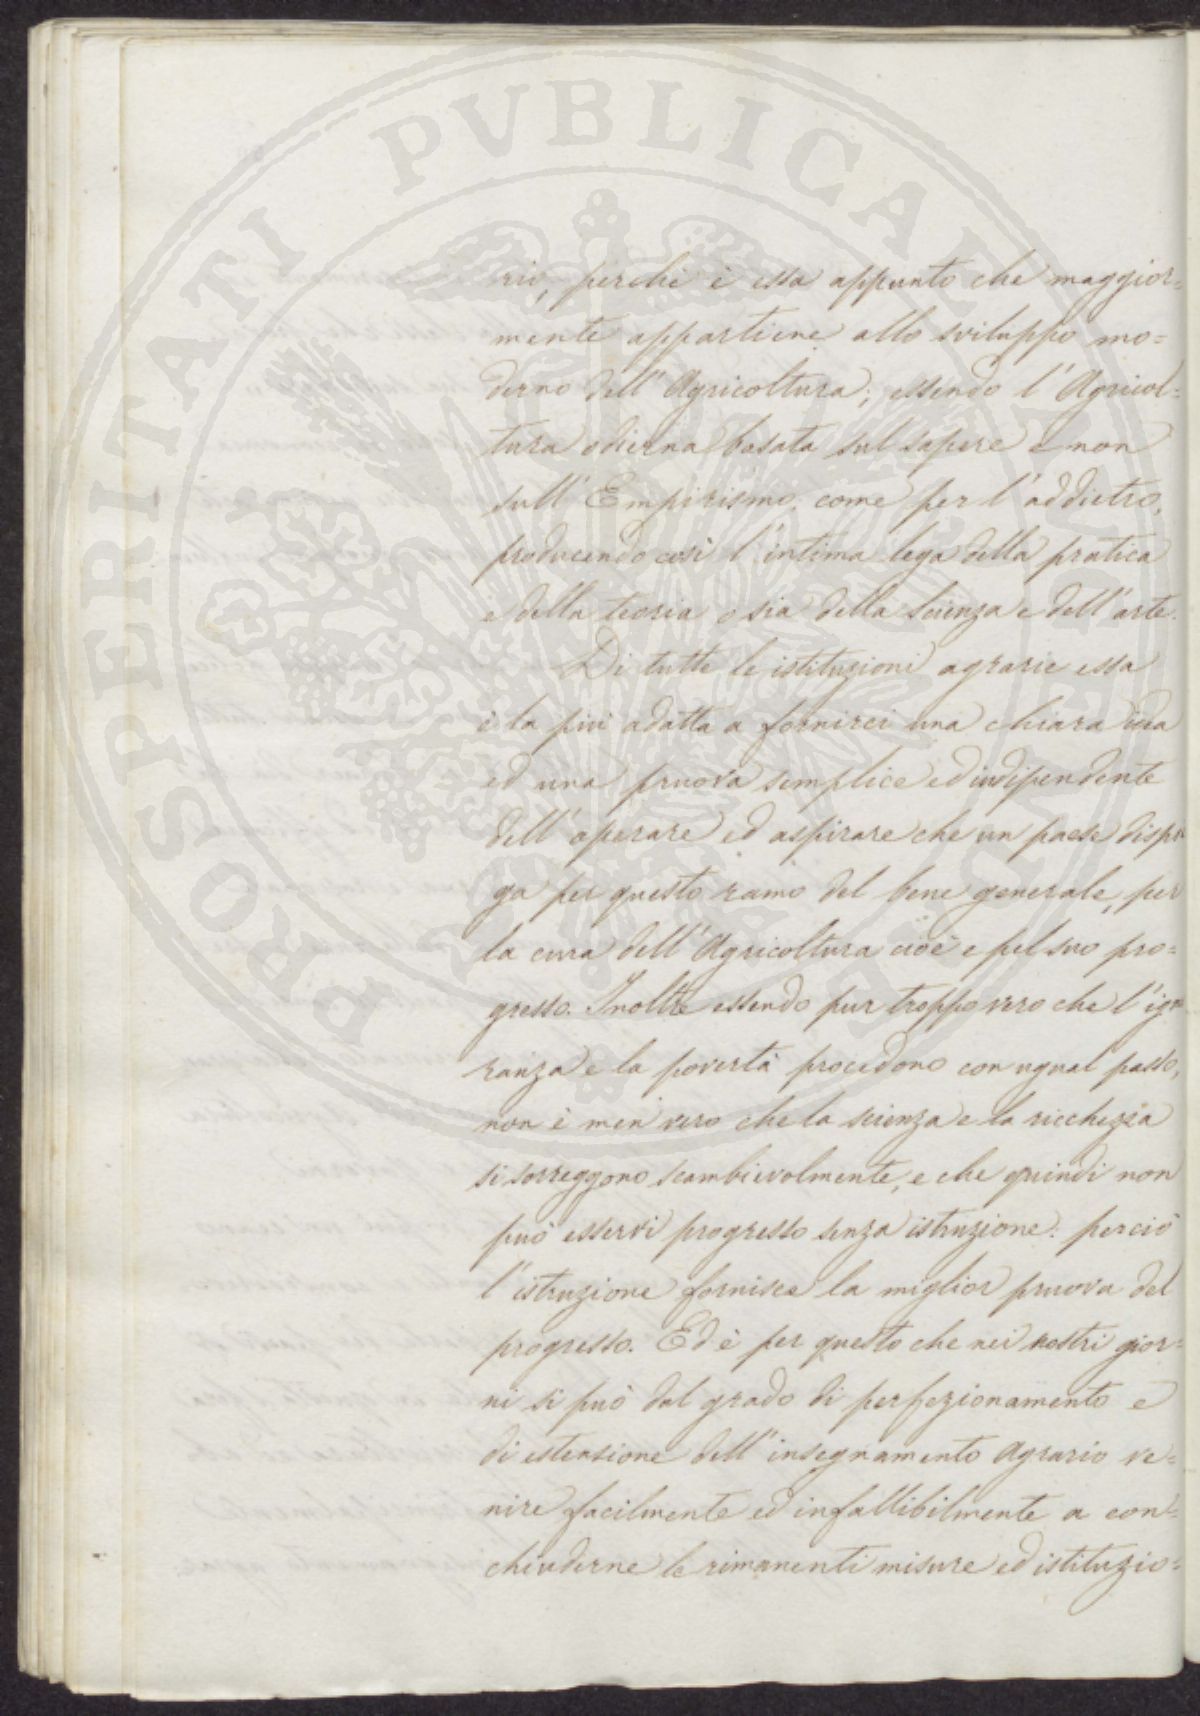 PROSPERITATI PVBLICAE
rio, perchè è essa appunto che maggior=
mente appartiene allo sviluppo mo=
derno dell'Agricoltura; essendo l'Agricol=
tura odierna basata sul sapere e non
sull'Empirismo, come per l'addietro,
producendo così l'intima lega della pratica
e della teoria o sia della Scienza e dell'arte.
Di tutte le istituzioni agrarie essa
è la più adatta a fornirci una chiara idea
ed una pruova semplice ed indipendente
dell'operare ed aspirare che un paese dispie
ga per questo ramo del bene generale, per
la cura dell'Agricoltura cioè e pel suo pro=
gresso. Inoltre essendo pur troppo vero che l'igno
ranza e la povertà procedono con ugual passo,
non è men vero che la scienza e la ricchezza
si sorreggono scambievolmente, e che quindi non
può esservi progresso senza istruzione: perciò
l'istruzione fornisce la miglior pruova del
progresso. Ed è per questo che nei nostri gior=
ni si può dal grado di perfezionamento e
di estensione dell'insegnamento Agrario ve=
nire facilmente ed infallibilmente a con=
chiuderne le rimanenti misure ed istituzio=